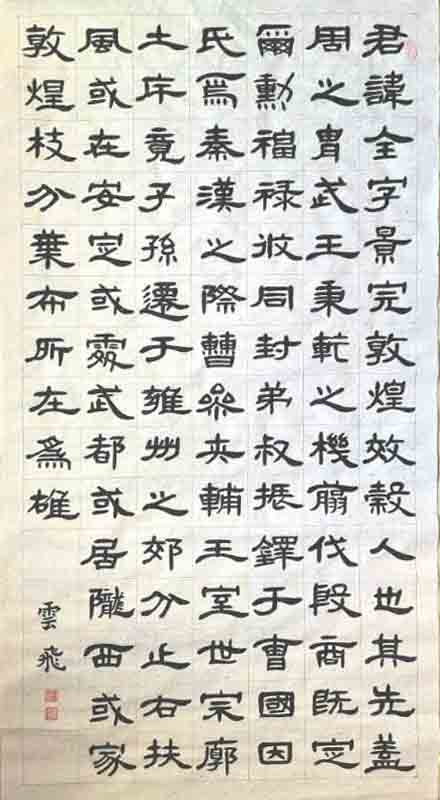 君諱全字景完敦煌效穀人也其先蓋
周之胄武王秉乾之機翦伐殷商既定
爾勳福祿攸同封弟叔振鐸于曹國因
氏焉秦漢之際曹參夾輔王室世宗廓
土斥竟子孫遷于雍州之郊分止右扶
風或在安定或處武都或居隴西或家
敦煌枝分葉布所在爲雄
雲飛